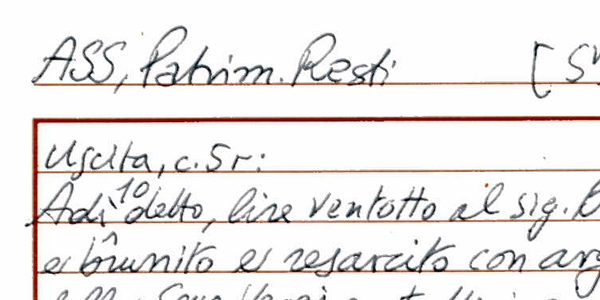 ASS, Patrim. Resti [S
Uscita, c. 5r:
Adì 10 detto, lire ventotto al sig.
e brunito e resarcito con